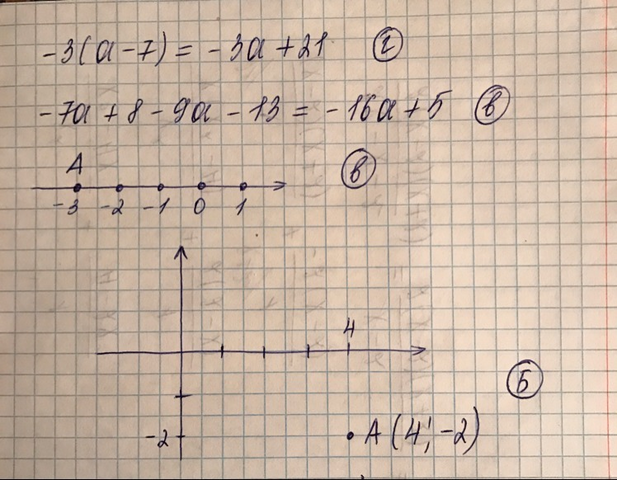 -3(a-7) = -3a + 21 г
-7a + 8 - 9a - 13 = -16a + 5 в
A
-3 -2 -1 0 1 в
4
Б
-2 A (4; -2)